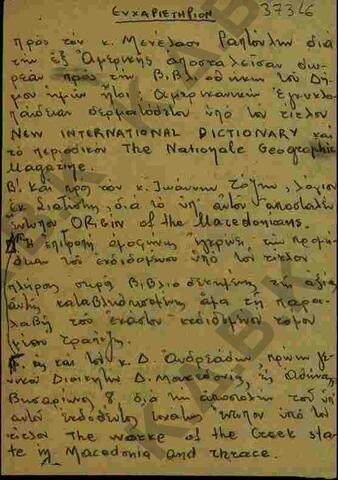 ΕΥΧΑΡΙΣΤΗΡΙΟΝ 37346
πρὸς τὸν κ. Μενέλαον διὰ
τὴν ἐξ Ἀμερικῆς ἀποσταλεῖσαν δω-
ρεὰν πρὸς τὴν Βιβλιοθήκην τοῦ Δή-
μου ἡμῶν ἤτοι Ἀμερικανικὴν Ἐγκυκλο-
παίδειαν δερματόδετον ὑπὸ τὸν τίτλον
NEW INTERNATIONAL DICTIONARY καὶ
τὸ περιοδικὸν The Nationale Geographic
Magazine.
Β! Καὶ πρὸς τὸν κ. Ἰωάννην λόγιον
ἐκ Σιατίστης, διὰ τὸ ὑπ' αὐτοῦ ἀποσταλὲν
ἔντυπον ORigin of the Macedonicans.
Ἡ ἐπιτροπὴ ὁμοφώνως ἐγκρίνει τὴν προμή-
θειαν τοῦ ἐκδιδομένου ὑπὸ τὸν τίτλον
πλήρης σειρὰ Βιβλιοθήκης τῆς ἀξίας
αὐτῆς καταβληθησομένης ἅμα τῇ παρα-
λαβῇ τοῦ ἑκάστου ἐκδιδομένου τόμου
μέσον τραπέζης.
καὶ τὸν κ. Δ. Ἀνδρεάδην πρώην γε-
νικὸν Διοικητὴν Δ. Μακεδονίας, εἰς Ἀθήνας
Βησαρίωνος 8, διὰ τὴν ἀποστολὴν τοῦ ὑπ'
αὐτοῦ ἐκδοθέντος ἔντυπον ὑπὸ τὸν
τίτλον The worke of the Greek sta-
te in Macedonia and thrace.